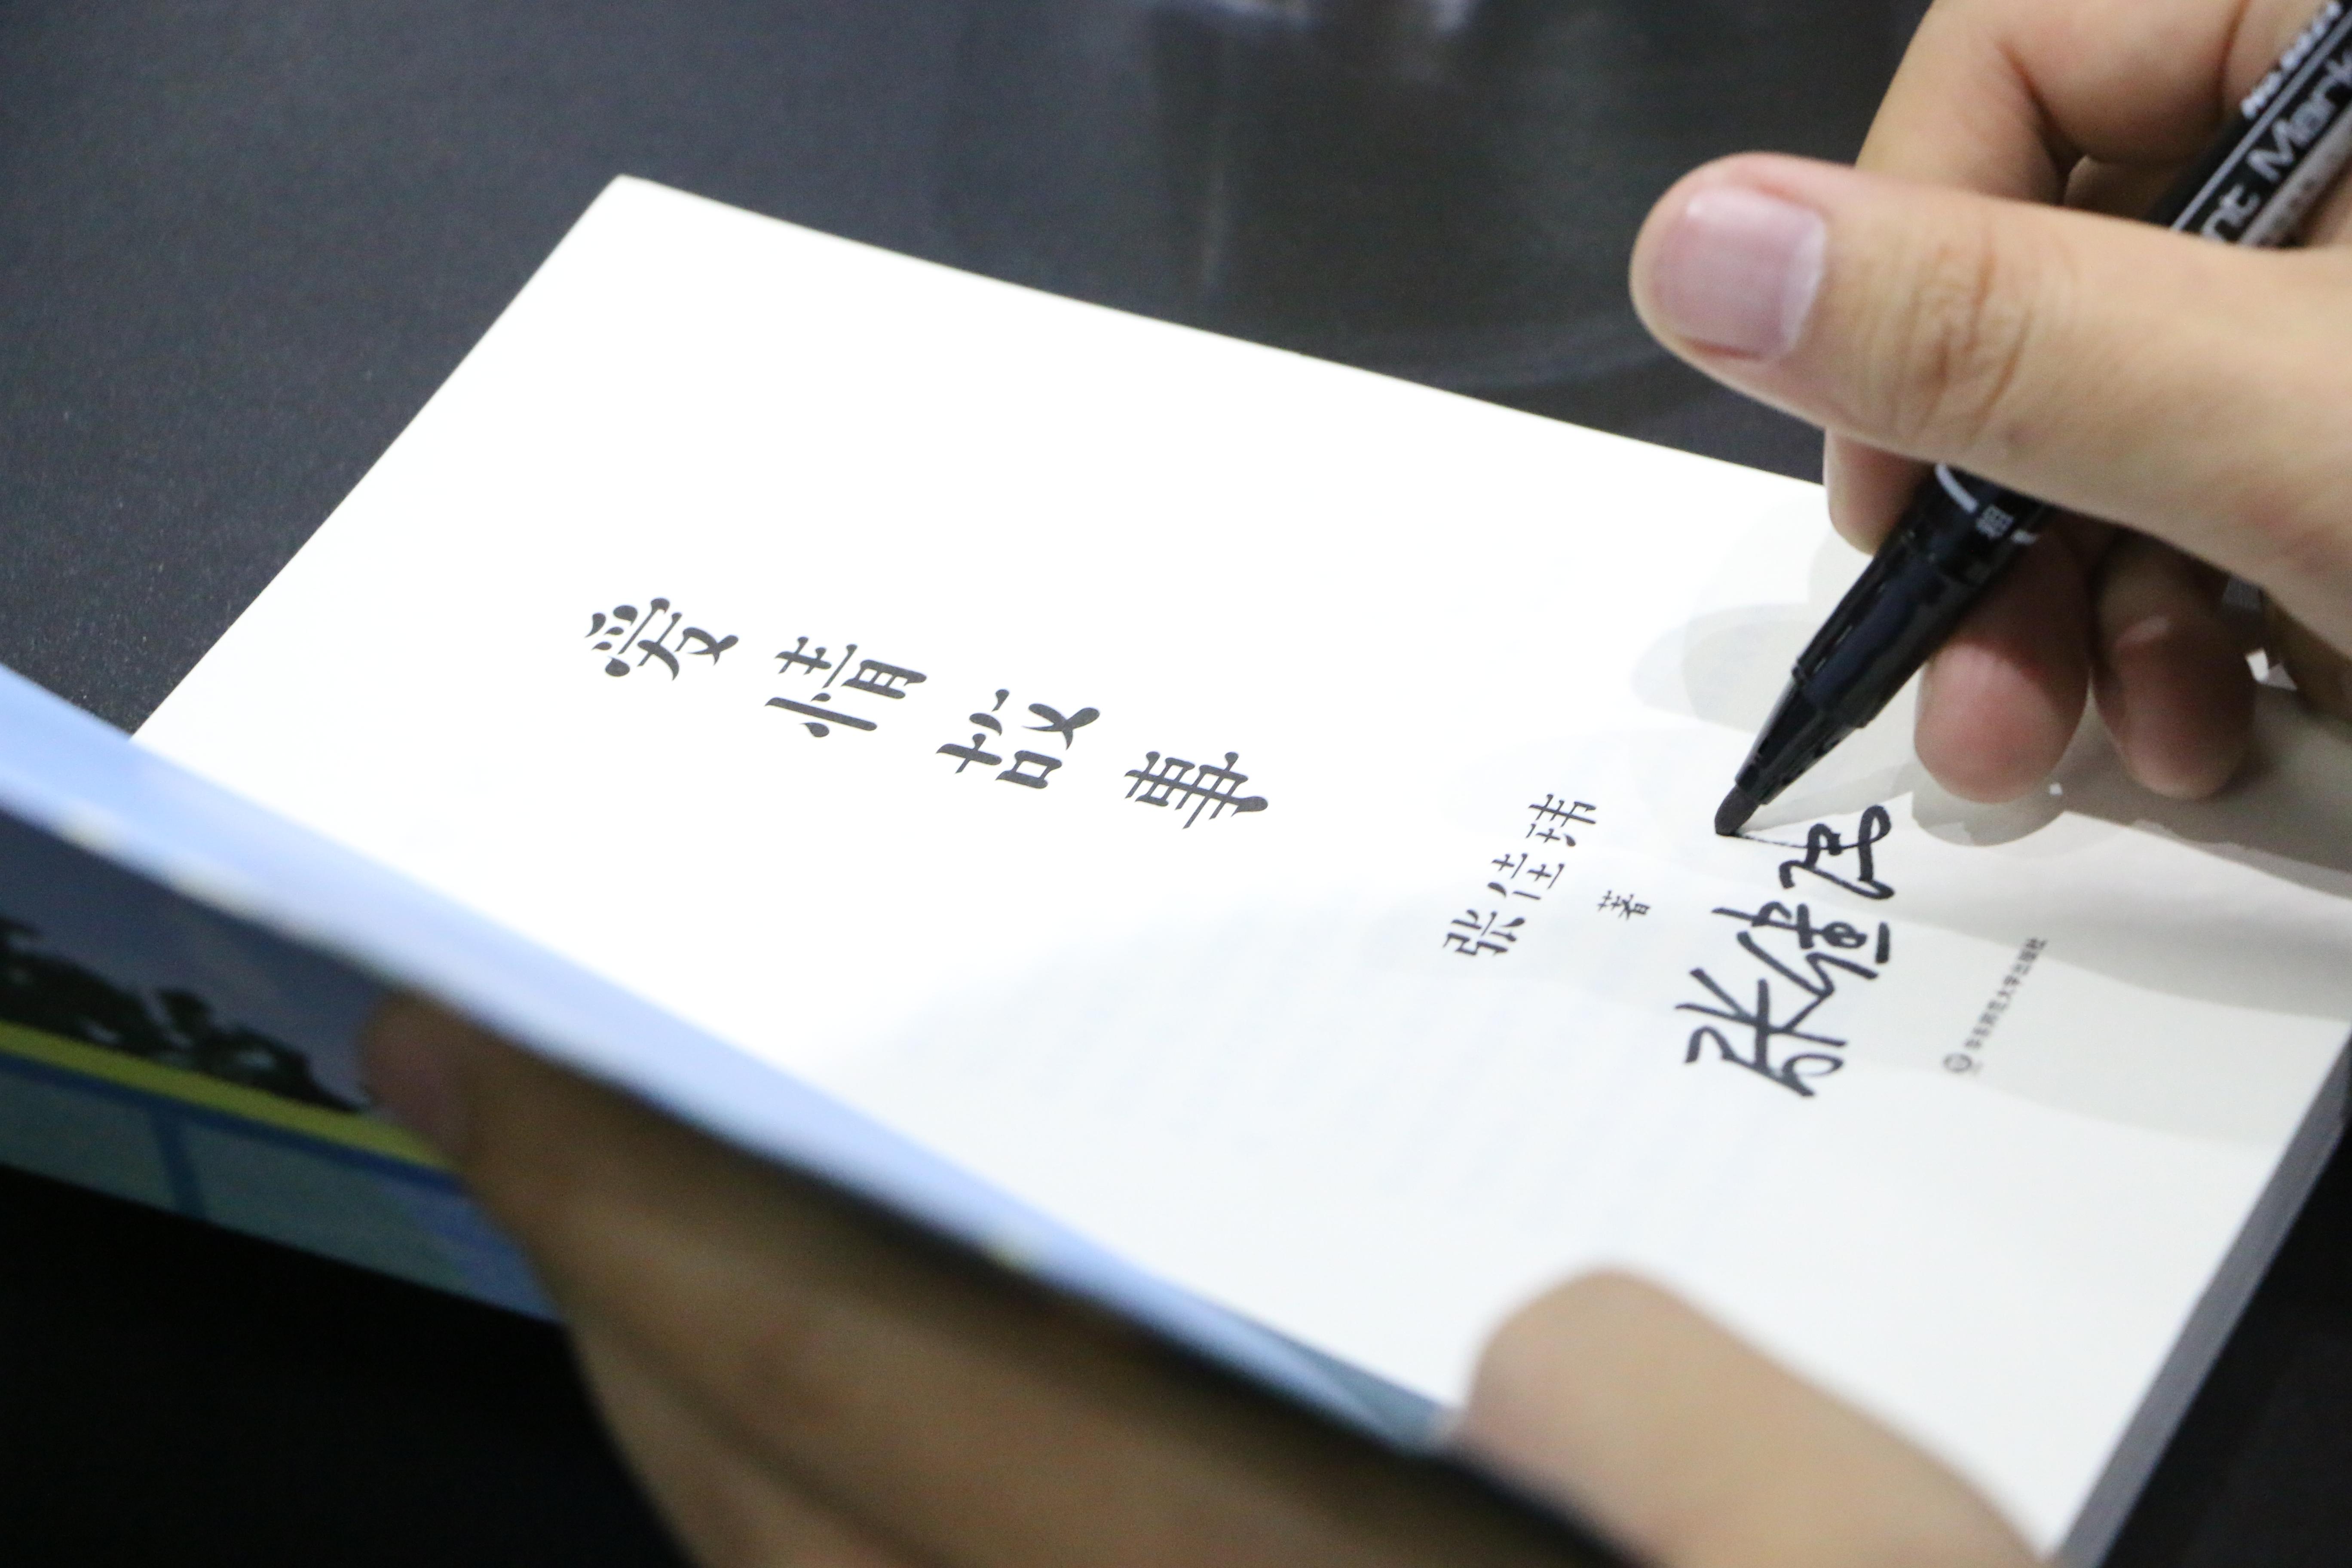 爱情故事
张佳玮
著
张佳玮
华东师范大学出版社
nt Mark
细